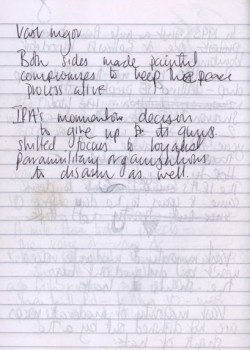 Vast majority
Both sides made painful
compromises to keep the peace
process alive
IRA's momentous decision
to give up its guns
shifted focus to loyalist
paramilitary organisations
to disarm as well.